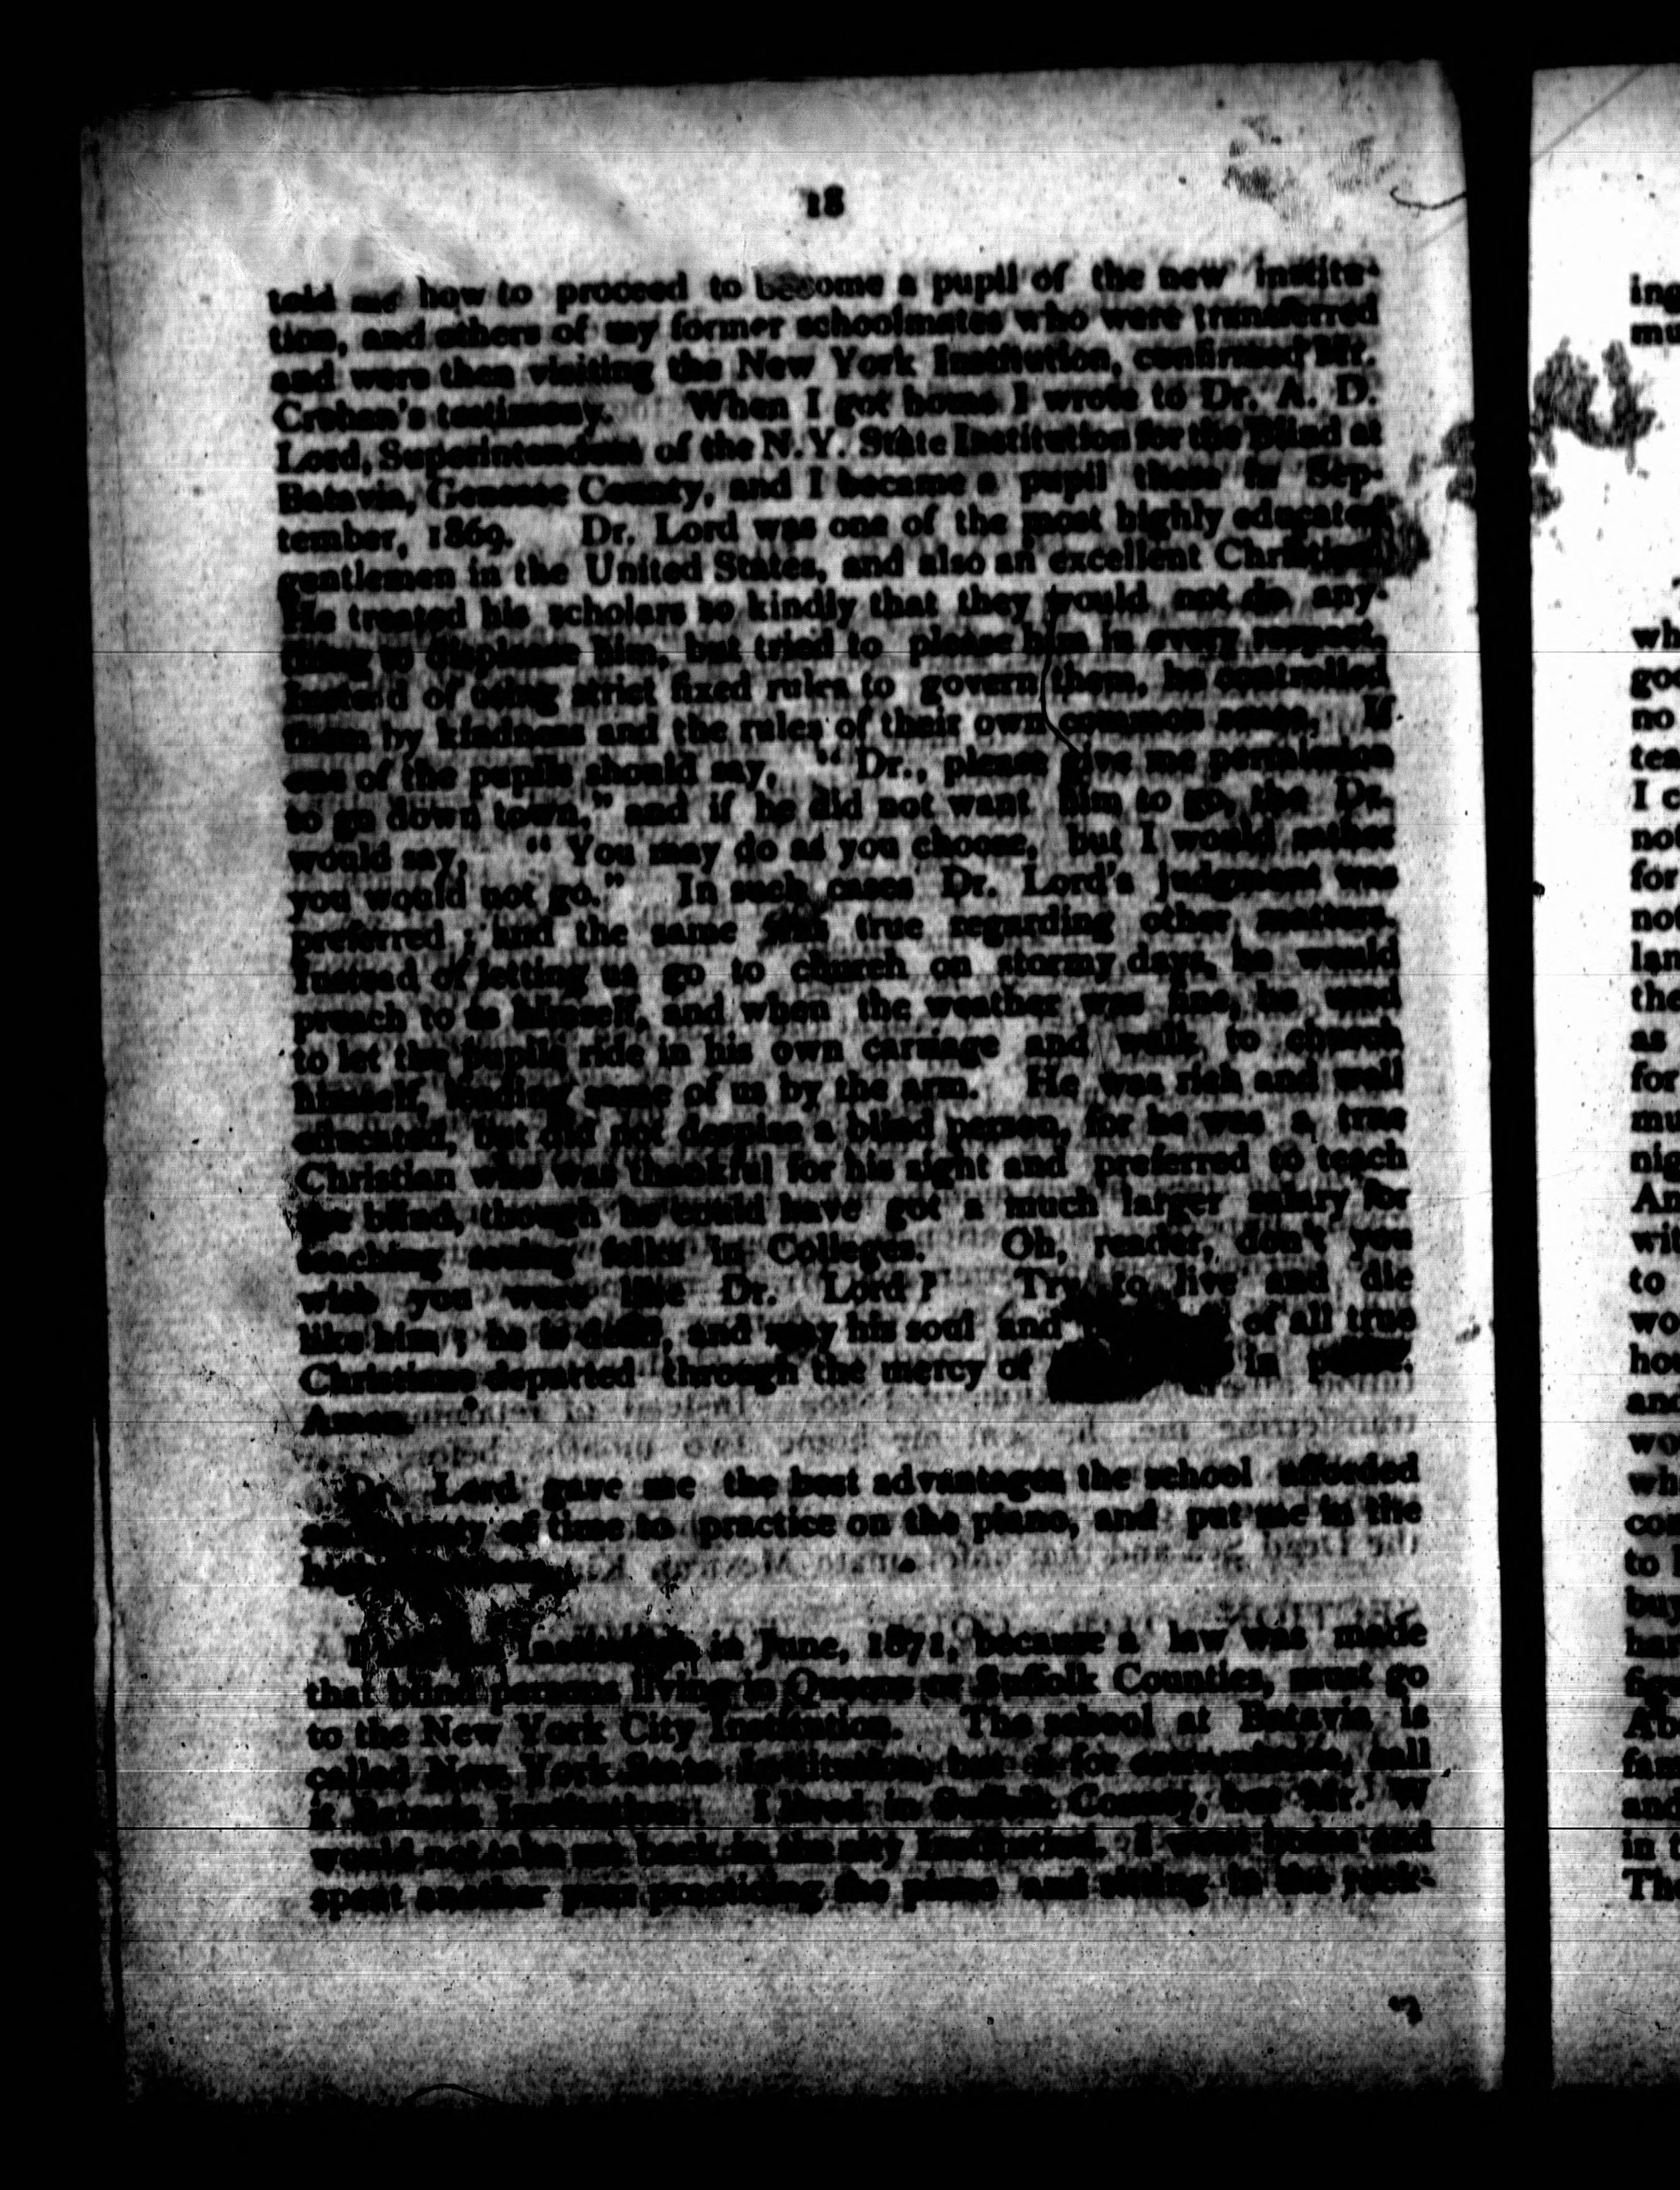 18
told me how to proceed to become a pupil of the new institu-
tion, and others of my former schoolmates who were transferred
and were then visiting the New York Institution, confirmed Mr.
Crohan's testimony. When I got home I wrote to Dr. A. D.
Lord, Superintendent of the N.Y. State Institution for the Blind at
Batavia, Genesee County, and I became a pupil there in Sep-
tember, 1869. Dr. Lord was one of the most highly educated
gentlemen in the United States, and also an excellent Christian.
He treated his scholars so kindly that they would not do any-
thing to displease him, but tried to please him in every respect.
Instead of using strict fixed rules to govern them, he controlled
them by kindness and the rules of their own common sense. If
one of the pupils should say, "Dr., please give me permission
to go down town," and if he did not want him to go, the Dr.
would say, "You may do as you choose, but I would rather
you would not go." In such cases Dr. Lord's judgment was
preferred; and the same was true regarding other matters.
Instead of letting us go to church on stormy days, he would
preach to us himself, and when the weather was fine, he used
to let the pupils ride in his own carriage and walk to church
himself, leading some of us by the arm. He was rich and well
educated, but did not despise a blind person, for he was a true
Christian who was thankful for his sight and preferred to teach
the blind, though he could have got a much larger salary for
teaching seeing folks in Colleges. Oh, reader, don't you
wish you were like Dr. Lord? Try to live and die
like him; he is dead, and may his soul and of all true
Christians departed through the mercy of in peace.
Amen.
Dr. Lord gave me the best advantages the school afforded
and plenty of time to practice on the piano, and put me in the
Institution in June, 1871, because a law was made
that blind persons living in Queens or Suffolk Counties, must go
to the New York City Institution. The school at Batavia is
called New York State Institution, but I for convenience, call
it Batavia Institution. I lived in Suffolk County, but Mr. W
would not take me back in the city Institution. I went home and
spent another year practicing the piano and sitting in the rock-
3
ing
mu
wh
goo
no
ten
I c
not
for
not
lan
the
as
for
mu
nig
An
wit
to
wo
ho
and
wo
wh
co
to
bu
ha
Ab
fan
and
in t
Th